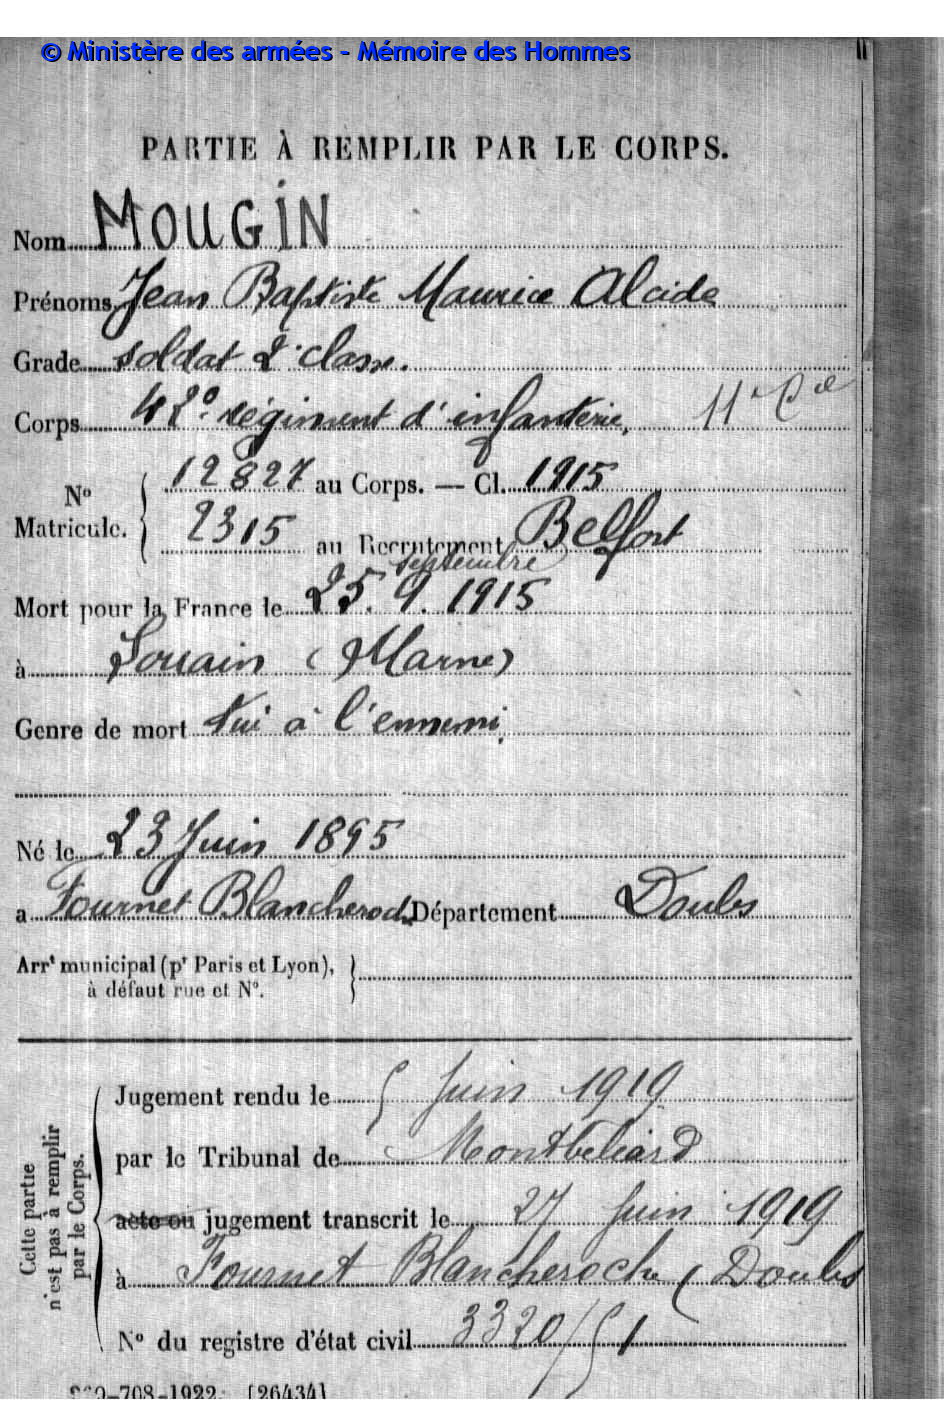 © Ministère des armées - Mémoire des Hommes
PARTIE À REMPLIR PAR LE CORPS.
Nom MOUGIN
Prénoms Jean Baptiste Maurice Alcide
Grade soldat 2e classe.
Corps 42e régiment d'infanterie, 11e Cie
Nº Matricule. { 12827 au Corps. — Cl. 1915
2315 au Recrutement Belfort
septembre
Mort pour la France le 25. 9. 1915
à Souain (Marne)
Genre de mort Tué à l'ennemi,
Né le 23 Juin 1895
a Fournet Blancheroche Département Doubs
Arrt municipal (pr Paris et Lyon),
à défaut rue et Nº.
Cette partie n'est pas à remplir par le Corps.
Jugement rendu le 5 Juin 1919
par le Tribunal de Montbéliard
acte ou jugement transcrit le 27 Juin 1919
à Fournet Blancheroche (Doubs
Nº du registre d'état civil 3320/51
708-1922. [26434]